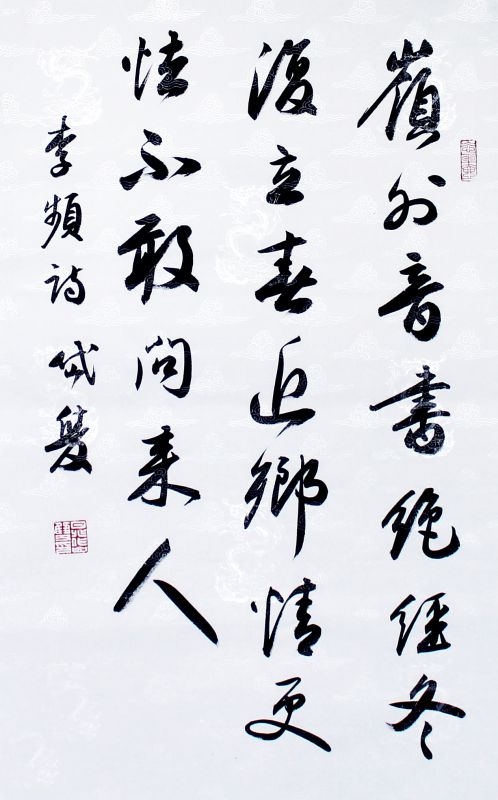 嶺外音書絶經冬
復立春近鄉情更
怯不敢問来人
李頻詩